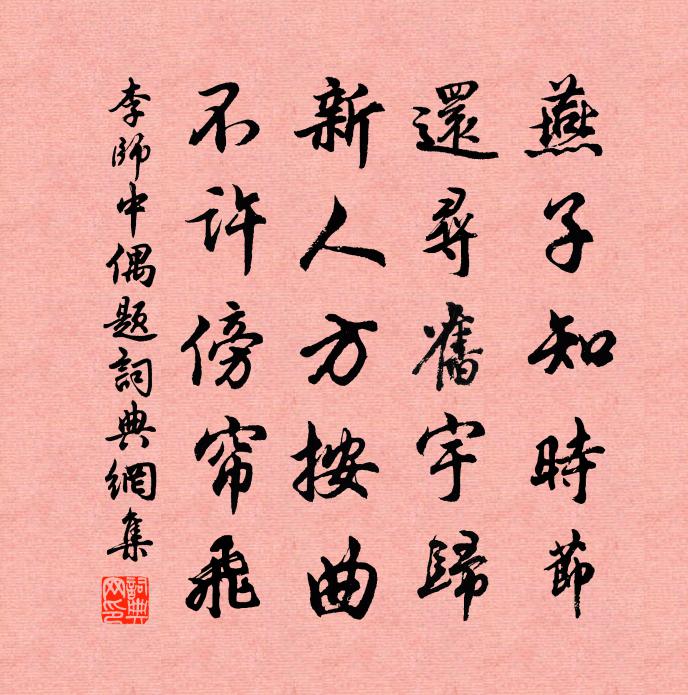 燕子知時節
還尋舊宇歸
新人方按曲
不許傍帘飛
李師中偶題詞典網集
詞典網印